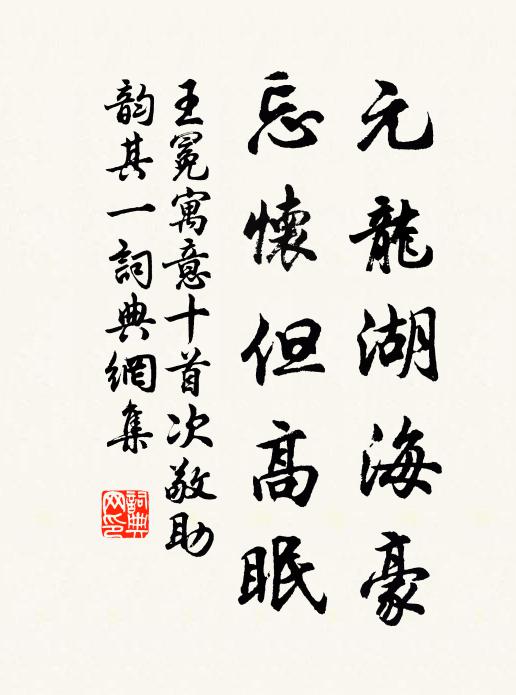 元龍湖海豪
忘懷但高眠
王冕寓意十首次敬助
韵其一詞典網集
詞典网印